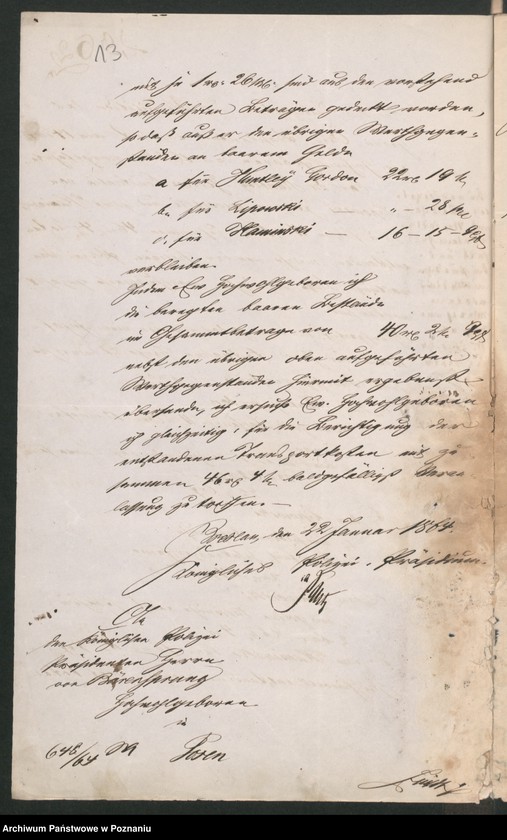 13
mit je 1 rℓ. 26 sgr. sind aus den vorstehend
aufgeführten Beträgen gedeckt worden,
so daß außer den übrigen Werthgegen-
ständen an baarem Gelde
a für Huntley Gordon 22 rℓ 19 sgr
b. für Lipowski " – 28 sgr
c. für Kaminski — 16 – 15 –
verbleiben.
Indem Ew. Hochwohlgeboren ich
die beregten baaren Bestände
im Gesammtbetrage von 40 rℓ 2 sgr
nebst den übrigen oben aufgeführten
Werthgegenständen hiermit ergebenst
übersende, ersuche Ew. Hochwohlgeboren
ich gleichzeitig, für die Berichtigung der
entstandenen Transportkosten mit zu-
sammen 46 rℓ 4 sgr baldgefälligst Veran
lassung zu treffen. —
Breslau, den 22 Januar 1864.
Königliches Polizei-Präsidium.
An
den Königlichen Polizei
Präsidenten Herrn
von Bärensprung
Hochwohlgeboren
in
Posen
648/64
Archiwum Państwowe w Poznaniu